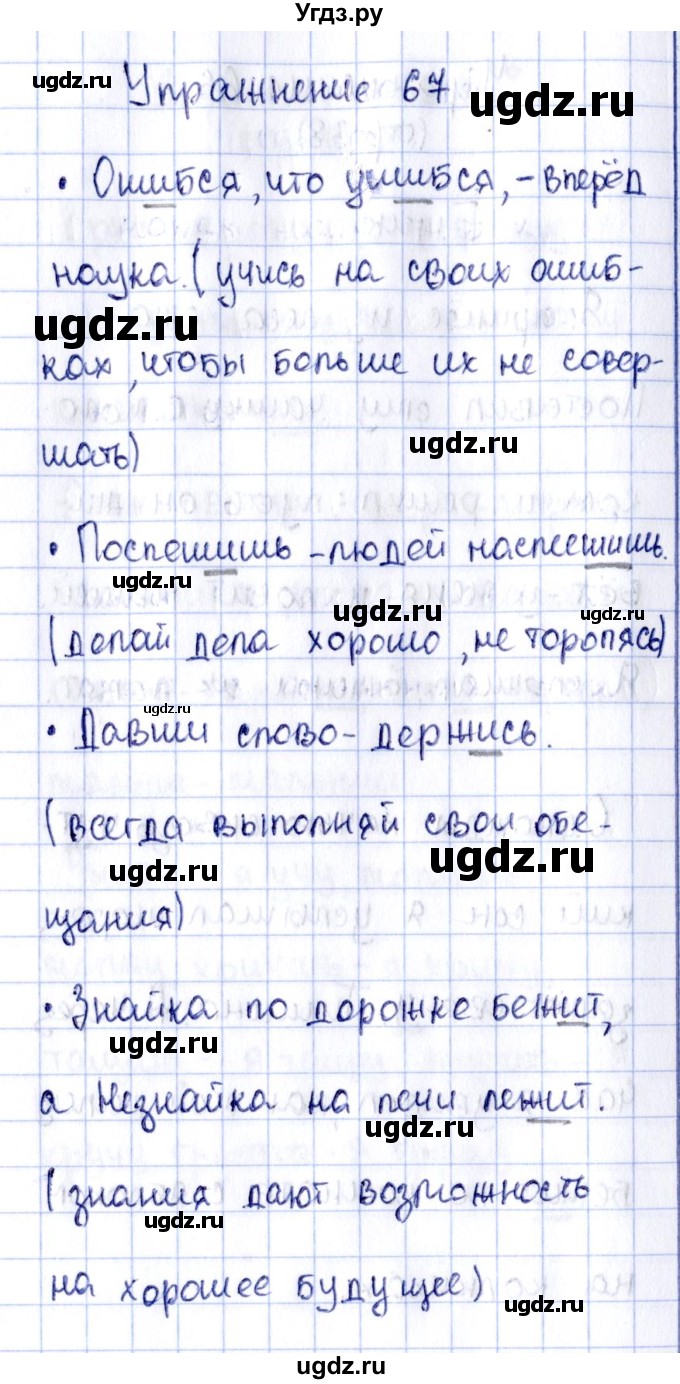 Угдз.ру
ugdz.ru
Упражнение 67 ugdz.ru
• Ошибся, что ушибся, - вперёд
наука. (учись на своих ошиб-
ugdz.ru
ках, чтобы больше их не совер-
ugdz.ru
шать)
• Поспешишь - людей насмешишь.
ugdz.ru
ugdz.ru
(делай дела хорошо, не торопясь)
ugdz.ru
• Давши слово - держись.
(всегда выполняй свои обе-
ugdz.ru ugdz.ru
щания)
• Знайка по дорожке бежит,
ugdz.ru
а Незнайка на печи лежит.
ugdz.ru
(знания дают возможность
ugdz.ru
на хорошее будущее)
ugdz.ru
ugdz.ru